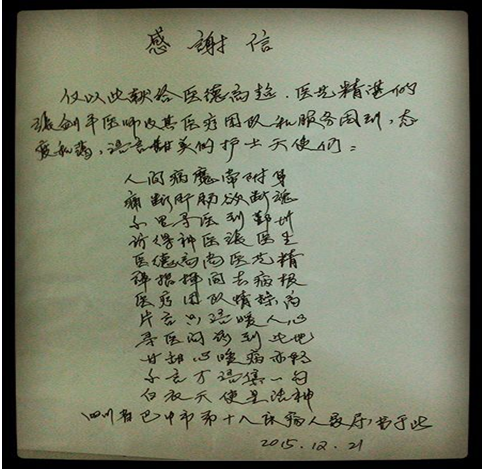 感謝信
仅以此献给医德高超、医艺精湛的
张剑平医师及其医疗团队和服务周到，态
度和蔼，语言甜美的护士天使们：
人间病魔常附身
痛断肝肠欲断魂
千里寻医到郑州
访得神医张医生
医德高尚医艺精
弹指挥间去病根
医疗团队情综高
片言只语暖人心
寻医问诊到此地
甘甜心暖病亦轻
千言万语集一句
白衣天使是活神
四川省巴中市第十八床病人段厅，书于此
2015.12.21